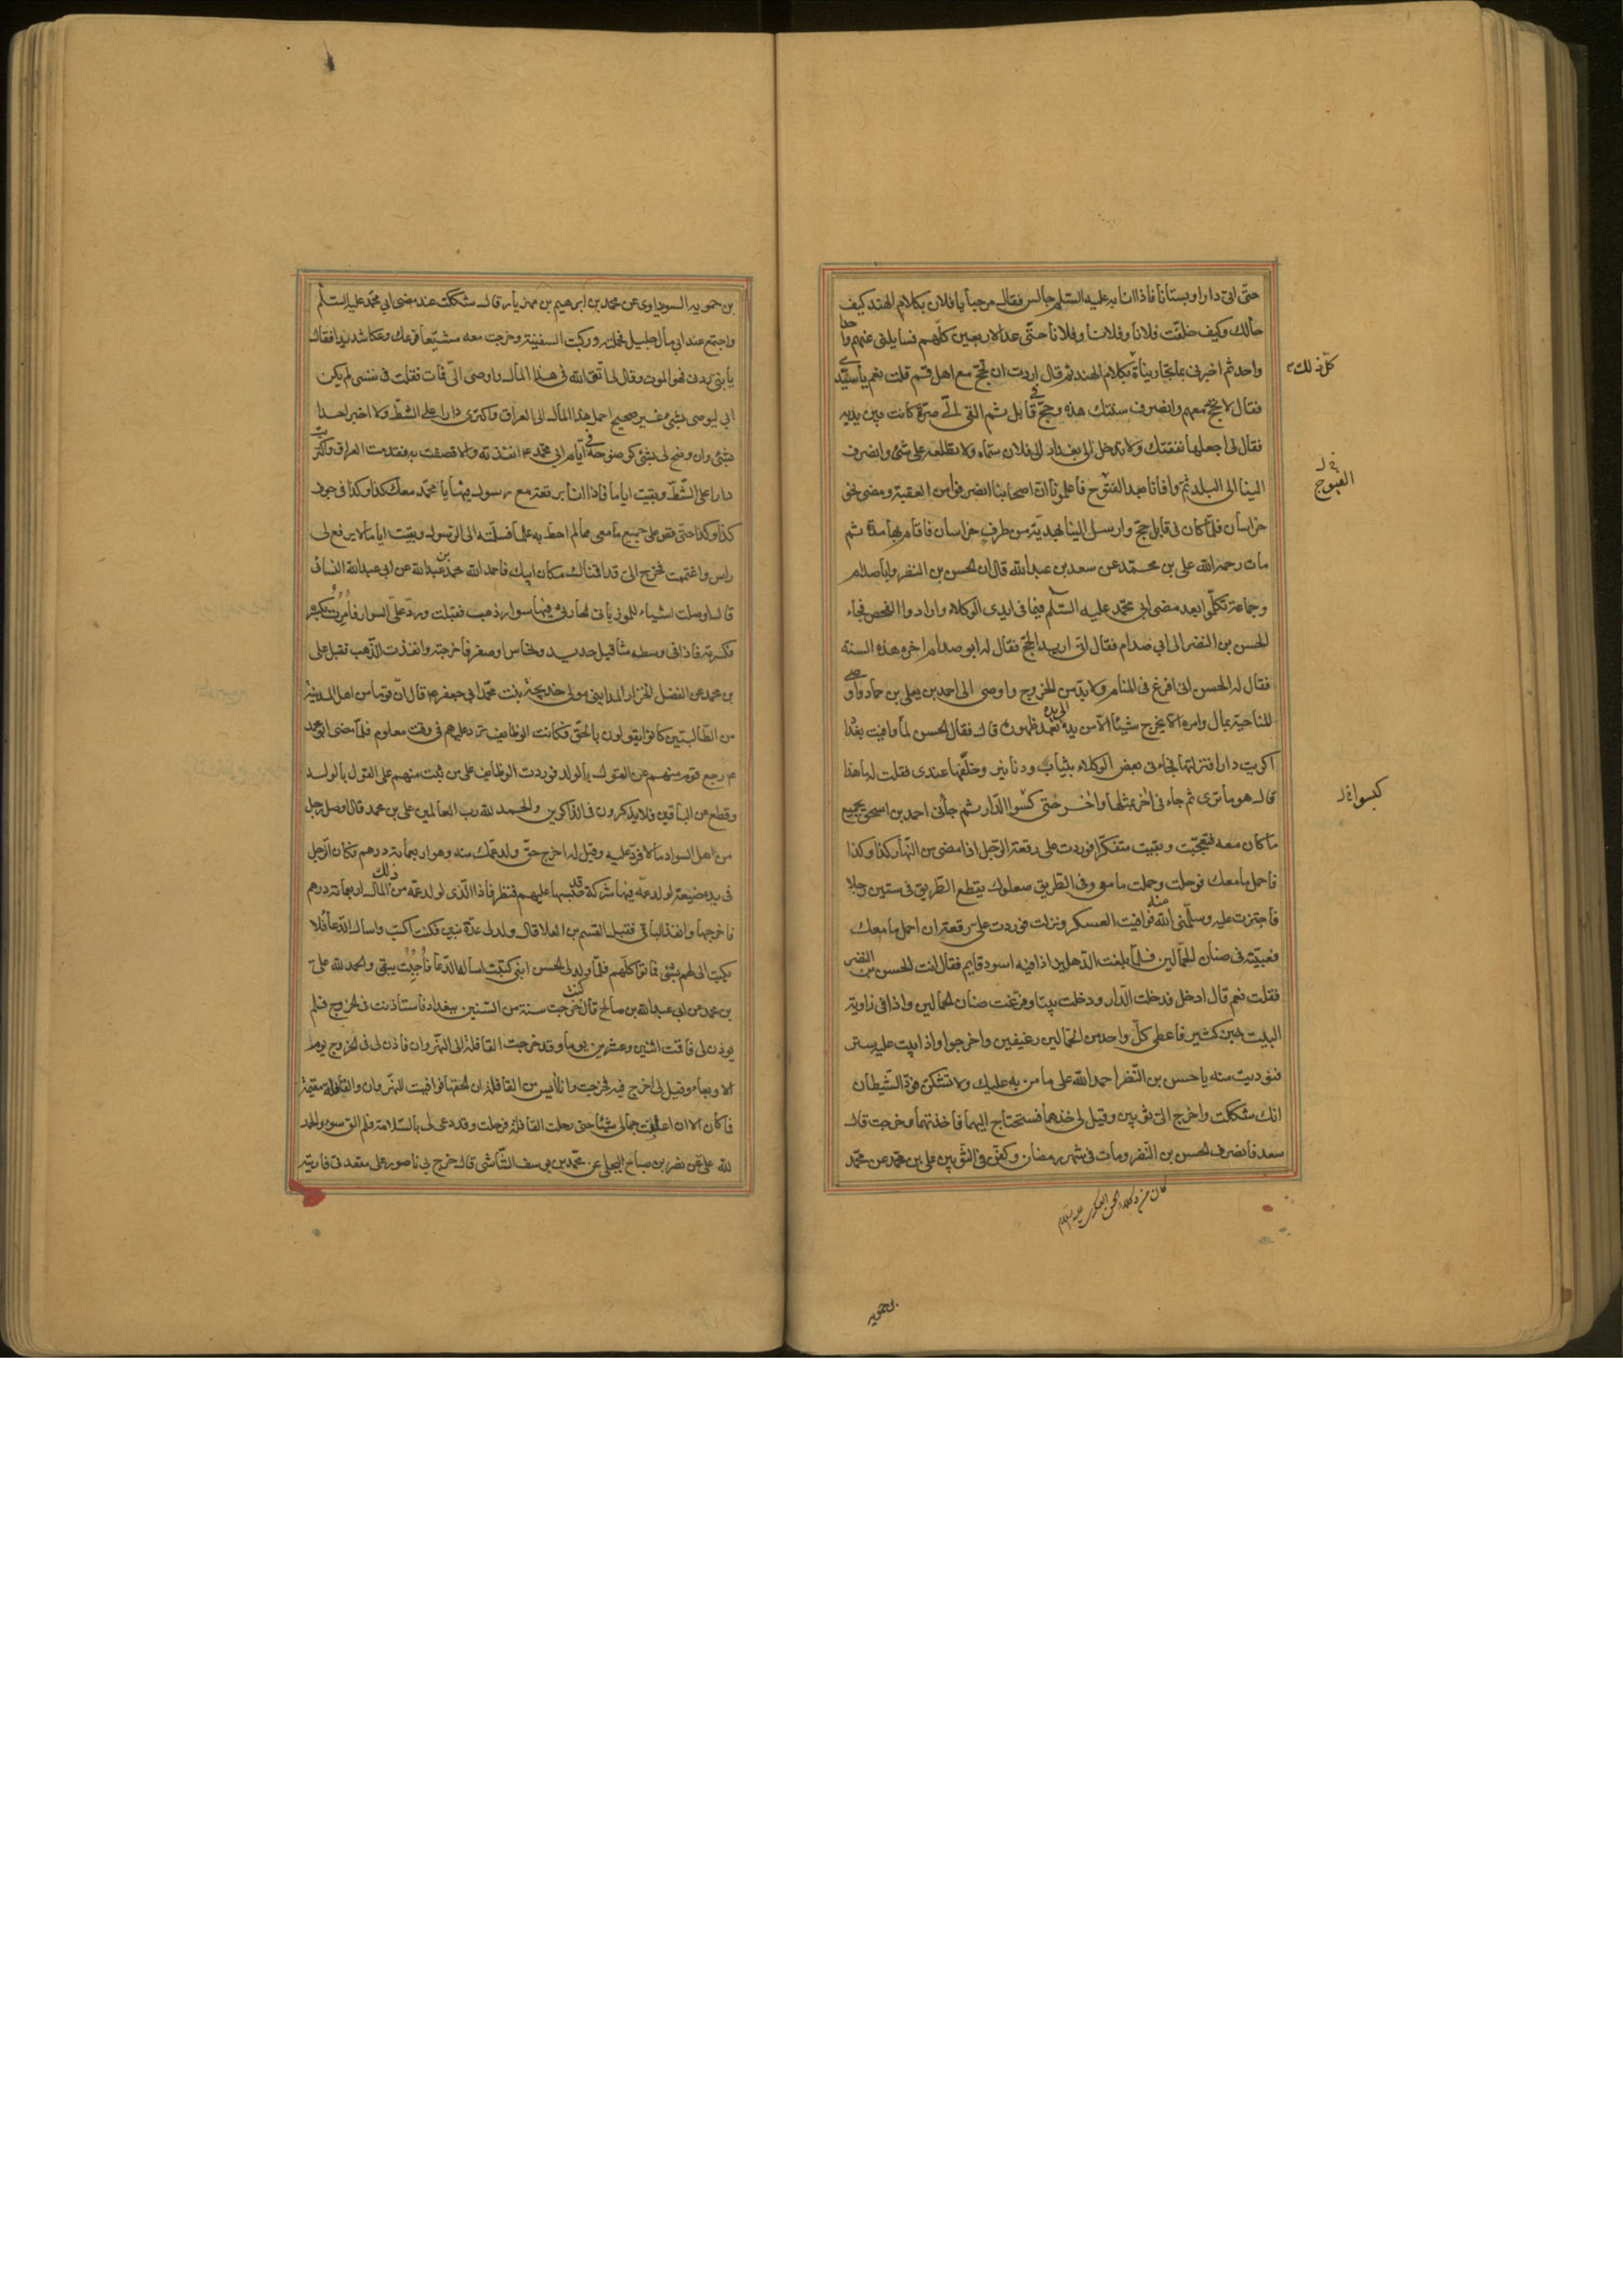 حتّى اتى دارا وبستانا فاذا انا به عليه السّلم جالس فقال مرحبا يا فلان بكلام الهند كيف
حالك وكيف خلّفت فلانا وفلانا وفلانا حتّى عد الاربعين كلّهم فسايلنى عنهم واحدا
واحد ثم اخبرنى بما تجارينا به بكلام الهند ثم قال اردت ان تحجّ مع اهل قم قلت نعم يا سيّدى
كلّ ذلك
فقال لا تحجّ معهم وانصرف سنتك هذه وحجّ فى قابل ثم القى الىّ صرّة كانت بين يديه
فقال لى اجعلها نفقتك ولا تدخل الى بغداد الى فلان سمّاه ولا تطلعه على شئ وانصرف
الينا الى البلد ثم وافانا بعد الفتوح فاعلمونا ان اصحابنا انصرفوا من العقبة ومضى نحو
الفيوج
خراسان فلمّا كان فى قابل حجّ وارسل الينا بهديّة من طرف خراسان فاقام بها مدّة ثم
مات رحمه الله على بن محمّد عن سعد بن عبدالله قال ان الحسن بن النضر وابا صدام
وجماعة تكلّموا بعد مضى ابى محمّد عليه السّلم فيما فى ايدى الوكلاء وارادوا الفحص فجاء
الحسن بن النضر الى ابى صدام فقال انى اريد الحجّ فقال له ابو صدام اخره هذه السنة
فقال له الحسن انى افزع فى المنام ولا بدّ من الخروج واوصى الى احمد بن يعلى بن حماد واوصى
للناحية بمال وامره الا يخرج شيئا الا من يده الى يده بعد ظهوره قال فقال الحسن لما وافيت بغداد
اكتريت دارا فنزلتها فجاءنى بعض الوكلاء بثياب ودنانير وخلّفها عندى فقلت له ما هذا
قال هو ما ترى ثم جاءنى اخر بمثلها واخر حتى كبسوا الدّار ثم جاءنى احمد بن اسحق بجميع
كبسوا
ما كان معه فتعجّبت وبقيت متفكّرا فوردت علىّ رقعة الرّجل اذا مضى من النّهار كذا وكذا
فاحمل ما معك فرحلت وحملت ما معى وفى الطريق صعلوك يقطع الطّريق فى ستين رجلا
فاجتزت عليه وسلّمنى الله منه فوافيت العسكر ونزلت فوردت علىّ رقعة ان احمل ما معك
فعبّيته فى صنان الحمّالين فلمّا بلغت الدّهليز اذا فيه اسود قايم فقال انت الحسن بن النضر
فقلت نعم قال ادخل فدخلت الدّار ودخلت بيتا وفرّغت صنان الحمالين واذا فى زاوية
البيت خبز كثير فاعطى كلّ واحد من الحمّالين رغيفين واخرجوا واذا بيت عليه ستر
فنوديت منه يا حسن بن النّضر احمد الله على ما من به عليك ولا تشكّن فودّ الشّيطان
انك شككت واخرج الىّ ثوبين وقيل لى خذهما فستحتاج اليهما فاخذتهما وخرجت قال
سعد فانصرف الحسن بن النّضر ومات فى شهر رمضان وكفّن فى الثّوبين على بن محمّد عن محمّد
كان من وكلاء الحسن العسكرى عليه السلام
بن حمويه
بن حمويه السويداوى عن محمد بن ابرهيم بن مهزيار قال شككت عند مضى ابى محمّد عليه السّلم
واجتمع عند ابى مال جليل فحمله وركبت السفينة وخرجت معه مشيّعا فوعك وعكا شديدا فقال
يا بنى ردنى فهو الموت وقال لى اتّق الله فى هذا المال واوصى الىّ فمات فقلت فى نفسى لم يكن
ابى ليوصى بشئ غير صحيح احمل هذا المال الى العراق واكترى دارا على الشطّ ولا اخبر احدا
بشئ وان وضح لى بشئ كوضوحه فى ايّام ابى محمّد ع انفذته والا قصفت به فقدمت العراق واكتريت
دارا على الشّطّ وبقيت اياما فاذا انا برقعة مع رسول فيها يا محمّد معك كذا وكذا فى جوف
كذا وكذا حتّى قصّ على جميع ما معى مما لم احط به علما فسلّمته الى الرّسول وبقيت اياما لا يرفع لى
راس واغتممت فخرج الىّ قد اقمناك مكان ابيك فاحمد الله محمد بن عبدالله عن ابى عبدالله النّسائى
قال اوصلت اشياء للمرزبانى الحارثى فيها سوار ذهب فقبلت وردّ علىّ السوار فاُمِرت بكسره
فكسرته فاذا فى وسطه مثاقيل حديد ونحاس او صفر فاخرجته وانفذت الذّهب فقبل على
بن محمد عن الفضل الخزاز المداينى مولى خديجة بنت محمّد ابى جعفر ع قال انّ قوما من اهل المدينة
من الطّالبيّين كانوا يقولون بالحقّ فكانت الوظايف ترد عليهم فى وقت معلوم فلمّا مضى ابو محمد
ع رجع قوم منهم عن القول بالولد فوردت الوظايف على من ثبت منهم على القول بالولد
وقطع عن الباقين فلا يذكرون فى الذّاكرين والحمد لله رب العالمين على بن محمد قال اوصل رجل
من اهل السواد مالا فردّ عليه وقيل له اخرج حقّ ولد عمّك منه وهو اربعماية درهم وكان الرّجل
فى يده ضيعة لولد عمّه فيها شركة قد حبسها عليهم فنظر فاذا الّذى لولد عمّه من ذلك المال اربعماية درهم
فاخرجها وانفذ الباقى فقبل القسم بن العلا قال ولد لى عدّة بنين فكنت اكتب واسال الدّعا فلا
يكتب الى لهم بشئ فماتوا كلّهم فلمّا ولد لى الحسن ابنى كتبت اسال الدّعا فاُجِبْت يبقى والحمد لله علىّ
بن محمد عن ابى عبدالله بن صالح قال كنت خرجت سنة من السّنين ببغداد فاستاذنت فى الخروج فلم
يوذن لى فاقمت اثنين وعشرين يوما وقد خرجت القافلة الى النّهروان فاذن لى فى الخروج يوم
الاربعاء وقيل لى اخرج فيه فخرجت وانا آيس من القافلة ان الحقها فوافيت النّهروان والقافلة مقيمة
فما كان الا ان اعلفت جمالى شيئا حتى رحلت القافلة فرحلت وقد دعى لى بالسّلامة فلم الق سوءا والحمد
لله علىّ عن نضر بن صباح البجلى عن محمّد بن يوسف الشّاشى قال خرج بى ناصور على مقعدتى فاريته